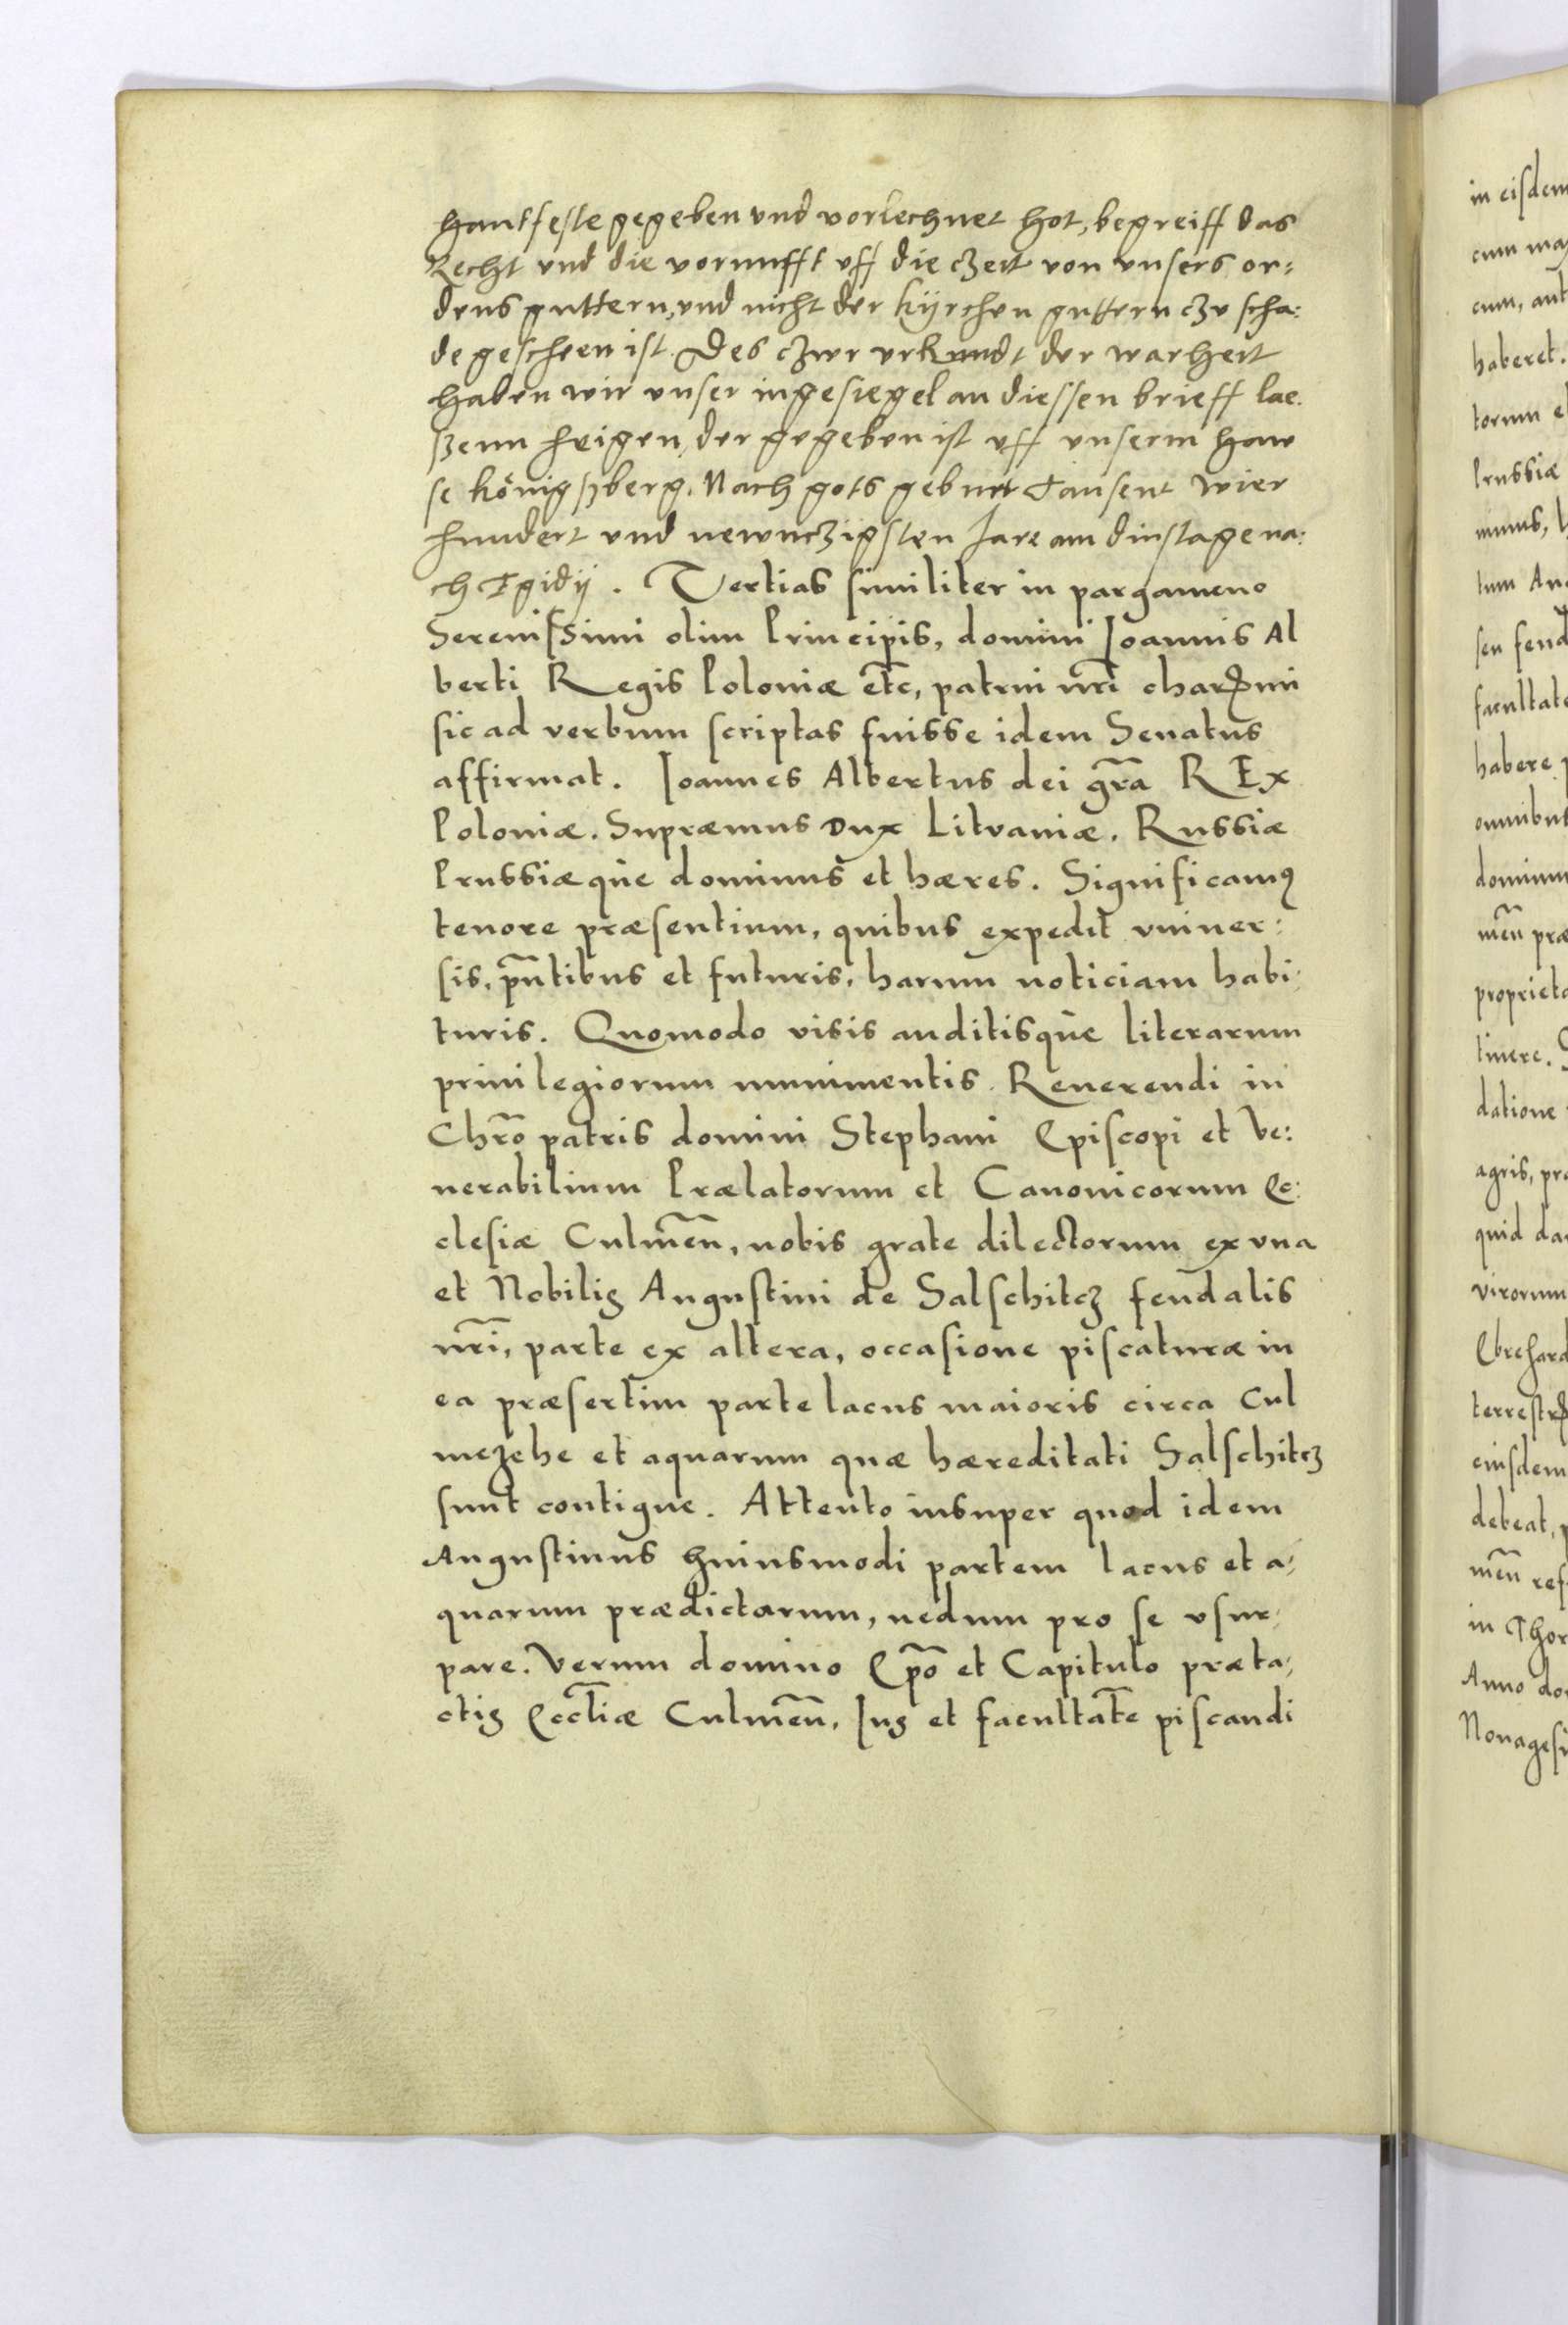 hantfeste gegeben vnd vorlechnet hot, begreiff das
Recht vnd die vornufft vff die czeit von vnsers or:
dens guttern, vnd nicht der kÿrchen guttern czv scha:
de gescheen ist. Des czwr vrkundt der warheit
haben wir vnser ingesiegel an diessen brieff lae.
ßenn heigen, der gegeben ist vff vnserm haw
se königßberg. Nach gots geburt Tausent Wier
hundert vnd newnczigsten Jare am dinstage na:
ch Egidij. Tertias similiter in pargameno
Serenissimi olim Principis, domini Joannis Al
berti Regis Poloniæ etc, patrui nri̅ charissimi
sic ad verbum scriptas fuisse idem Senatus
affirmat. Joannes Albertus dei gra̅ REx
Poloniæ. Supræmus Dux Litvaniæ. Russiæ
Prussiæque dominus et hæres. Significamꝰ
tenore præsentium, quibus expedit vniuer:
sis, pn̅tibus et futuris, harum noticiam habi,
turis. Quomodo visis auditisque literarum
priuilegiorum munimentis Reuerendi in
Chr̅o patris domini Stephani Episcopi et Ve:
nerabilium Prælatorum et Canonicorum Ec:
clesiæ Culmen̅, nobis grate dilectorum ex vna
et Nobilis Augustini de Salschitcz feudalis
nri̅, parte ex altera, occasione piscaturæ in
ea præsertim parte lacus maioris circa Cul
mezehe et aquarum quæ hæreditati Salschitcz
sunt contigue. Attento insuper quod idem
Augustinus huiusmodi partem lacus et a,
quarum prædictarum, nedum pro se vsur,
pare. Verum domino Ep̅o et Capitulo præta,
ctis Eccl̅iæ Culmen̅, Jus et facultate̅ piscandi
in eisdem
cum
cum,
haberet.
torum
Prussiæ
tum
seu
facultate
habere
omnibus
men̅ præ
tinere.
datione
agris,
quid
virorum
eiusdem
debeat,
men̅
in Thor
Anno
Nonagesi